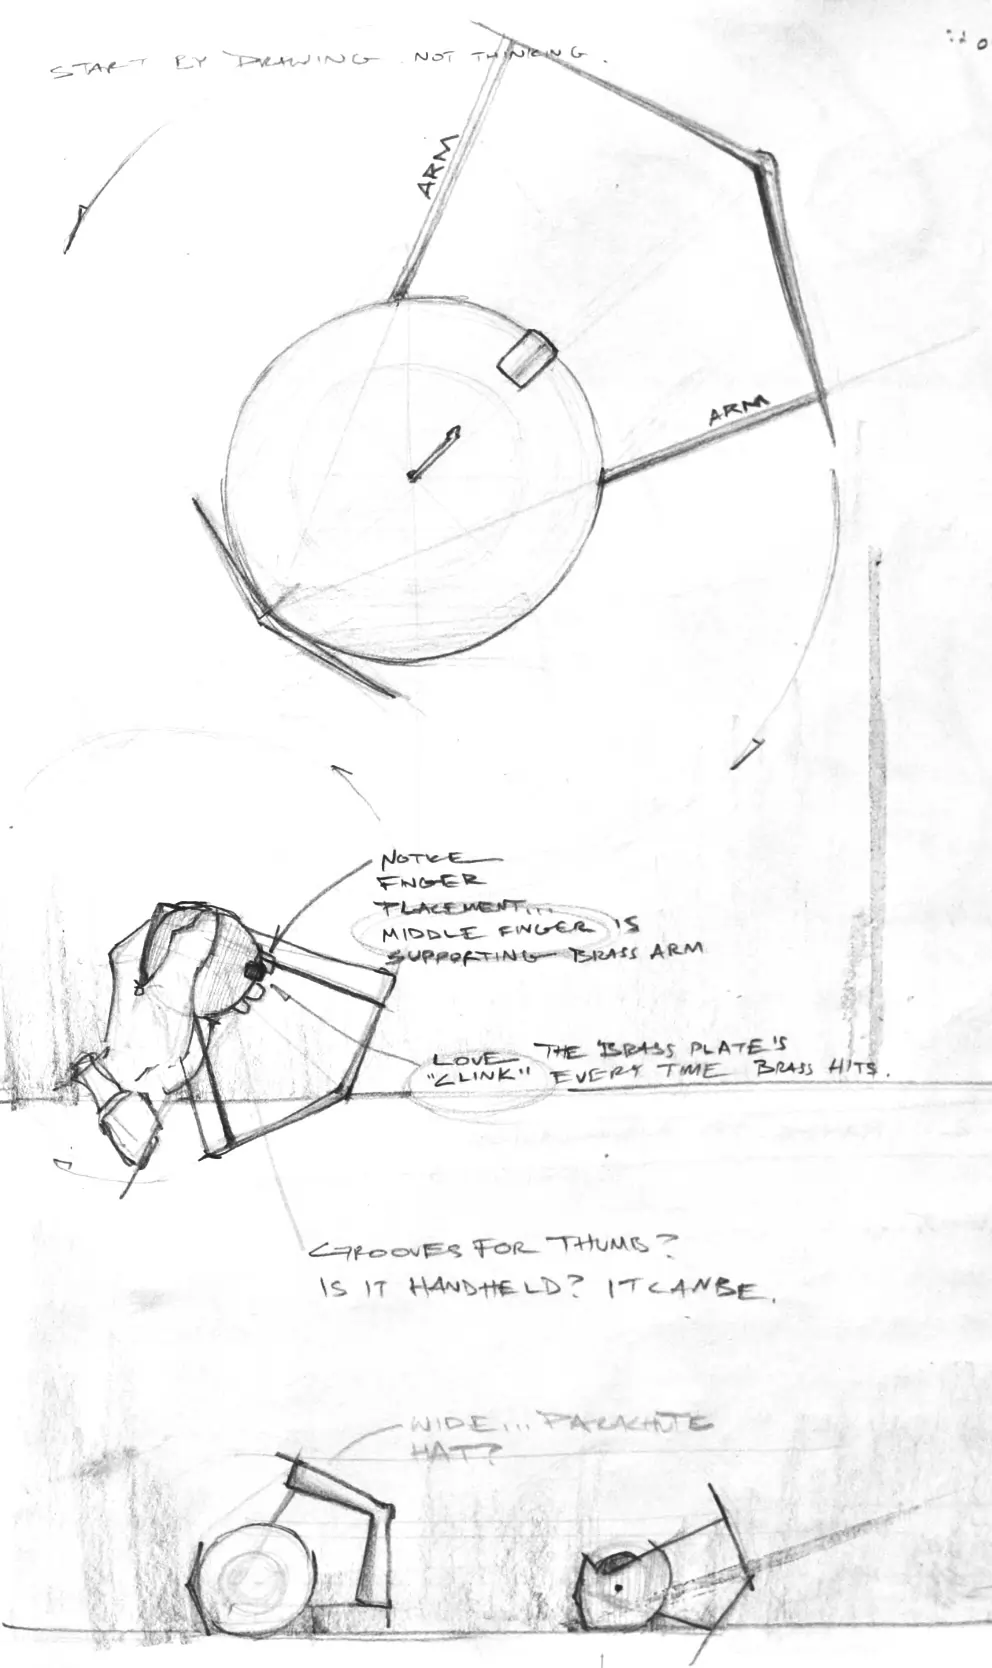 START BY DRAWING NOT THINKING.
ARM
ARM
NOTICE
FINGER
PLACEMENT...
MIDDLE FINGER IS
SUPPORTING BRASS ARM
LOVE THE BRASS PLATE'S
"CLINK" EVERY TIME BRASS HITS.
GROOVES FOR THUMB?
IS IT HANDHELD? IT CAN BE.
WIDE... PARACHUTE
HAT?